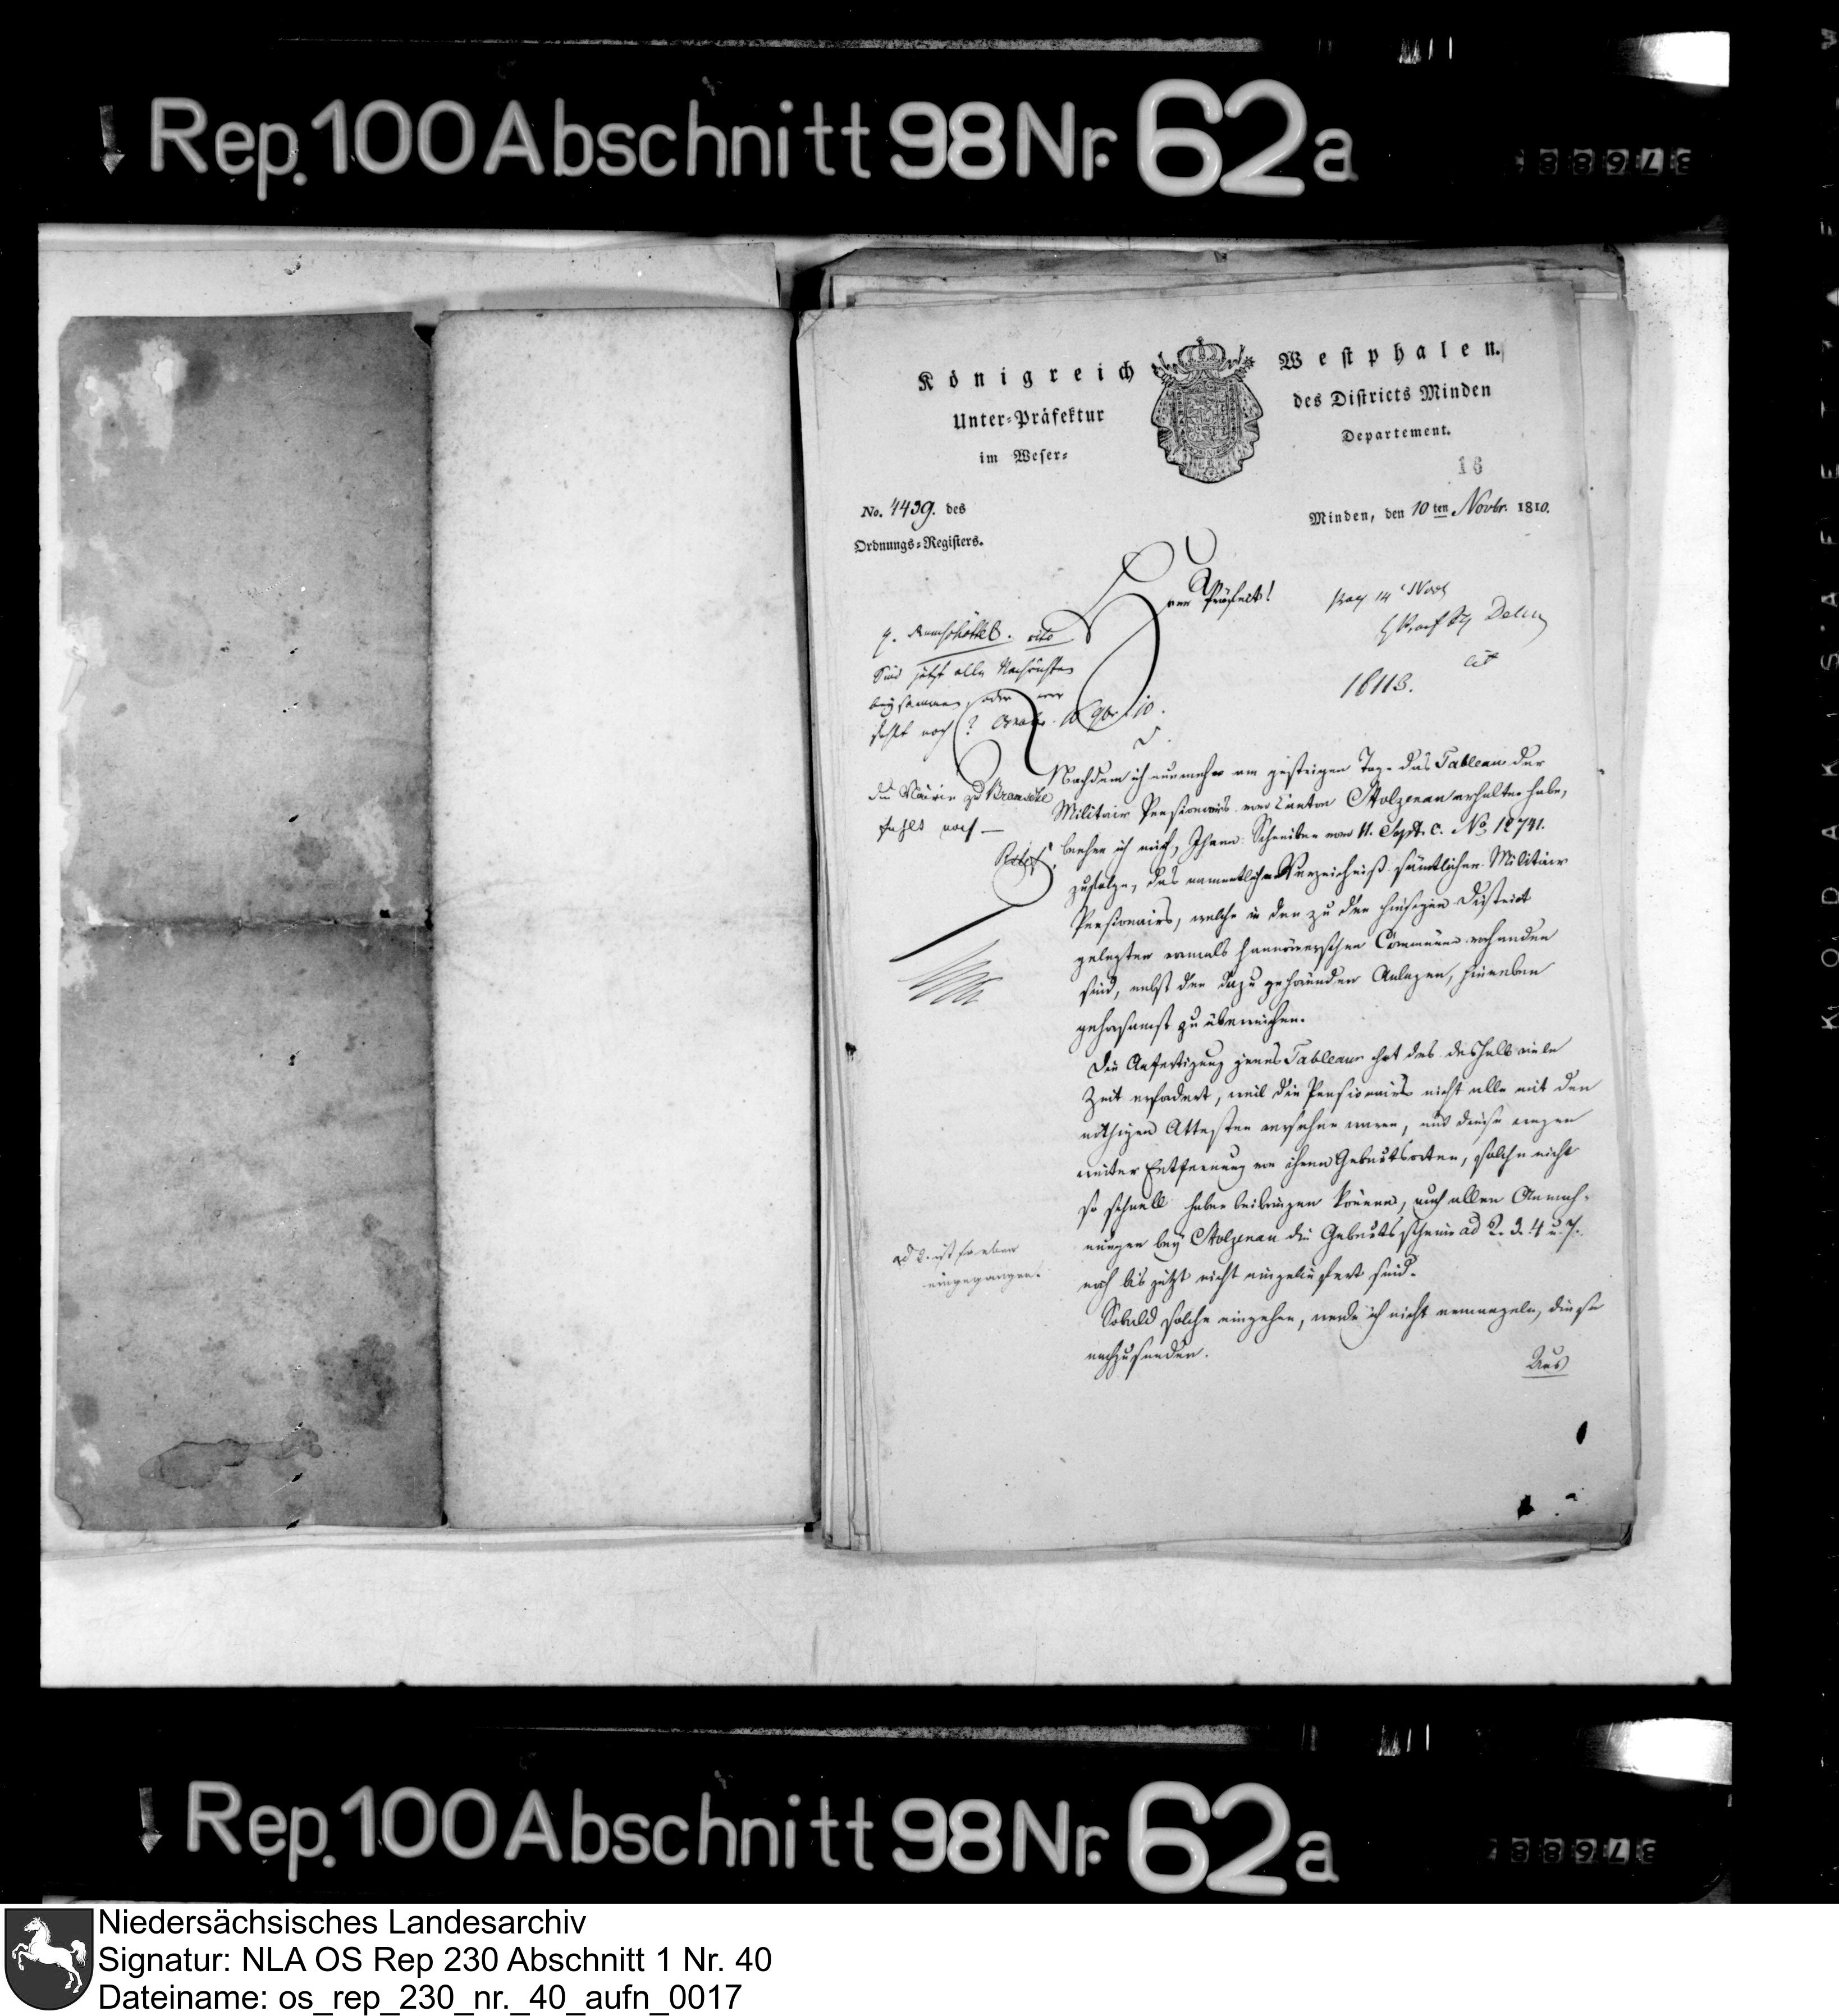 Rep. 100 Abschnitt 98 Nr. 62a
Königreich Westphalen.
Unter-Präfektur des Districts Minden
im Weser-Departement.
16
No. 4439. des
Ordnungs-Registers.
Minden, den 10ten Novbr. 1810.
Herr Präfect!
cito
Sind jetzt alle Nachrichten
beysammen, oder wer
fehlt noch?
16113.
Die Mairie zu Bramsche
fehlt noch —
Nachdem ich nunmehr am gestrigen Tage das Tableau der
Militair Pensionairs vom Canton Stolzenau erhalten habe,
beehre ich mich, Ihrem Schreiben vom 11. Sept. c. No. 12741.
zufolge, das namentliche Verzeichniß sämtlicher Militair
Pensionairs, welche in den zu dem hiesigen District
gelegten vormals hannöverschen Communen vorhanden
sind, nebst den dazu gehörenden Anlagen, hieneben
gehorsamst zu überreichen.
Die Anfertigung jenes Tableaus hat das deshalb viele
Zeit erfodert, weil die Pensionairs nicht alle mit den
nöthigen Attesten versehen waren, und diese wegen
weiter Entfernung von ihren Geburtsorten, solche nicht
so schnell haben beibringen können, auch allen
bey Stolzenau die Geburtsscheine ad 2. 3. 4 u. 7.
noch bis jetzt nicht eingeliefert sind.
Sobald solche eingehen, werde ich nicht ermangeln, diese
nachzusenden.
ad 2. ist so eben
eingegangen.
Aus
Rep. 100 Abschnitt 98 Nr. 62a
Niedersächsisches Landesarchiv
Signatur: NLA OS Rep 230 Abschnitt 1 Nr. 40
Dateiname: os_rep_230_nr._40_aufn_0017